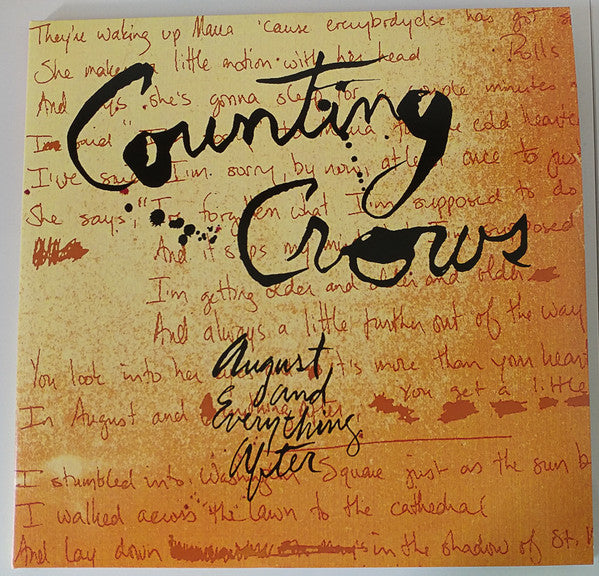 They're waking up Maria 'cause everybody else has got s
She makes a little motion with her head
Rolls
And says she's gonna sleep for a couple minutes
Counting
I said I to Maria for the cold hearte
I've said I'm sorry by now, at least once to just
She says, "I've forgotten what I'm supposed to do
Crows
And it slips my I'm supposed
I'm getting older and older and older
And always a little further out of the way
August
and
Everything
After
You look into her it's more than your heart
In August and everything after
You get a little
I stumbled into Washington Square just as the sun b
I walked across the lawn to the cathedral
And lay down in the shadow of St.